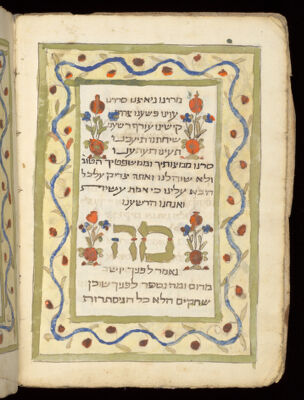 מרדנו ניאצנו סררנו
עוינו פשענו צררנו
קישינו עורף רשענו
שיחתנו תיעבנו
תעינו תעתענו
סרנו ממצותיך וממשפטיך הטוב
ולא שוה לנו ואתה צדיק על כל
הבא עלינו כי אמת עשית
ואנחנו הרשענו
מה
נאמר לפניך יושב
מרום ומה נספר לפניך שוכן
שחקים הלא כל הניסתרות